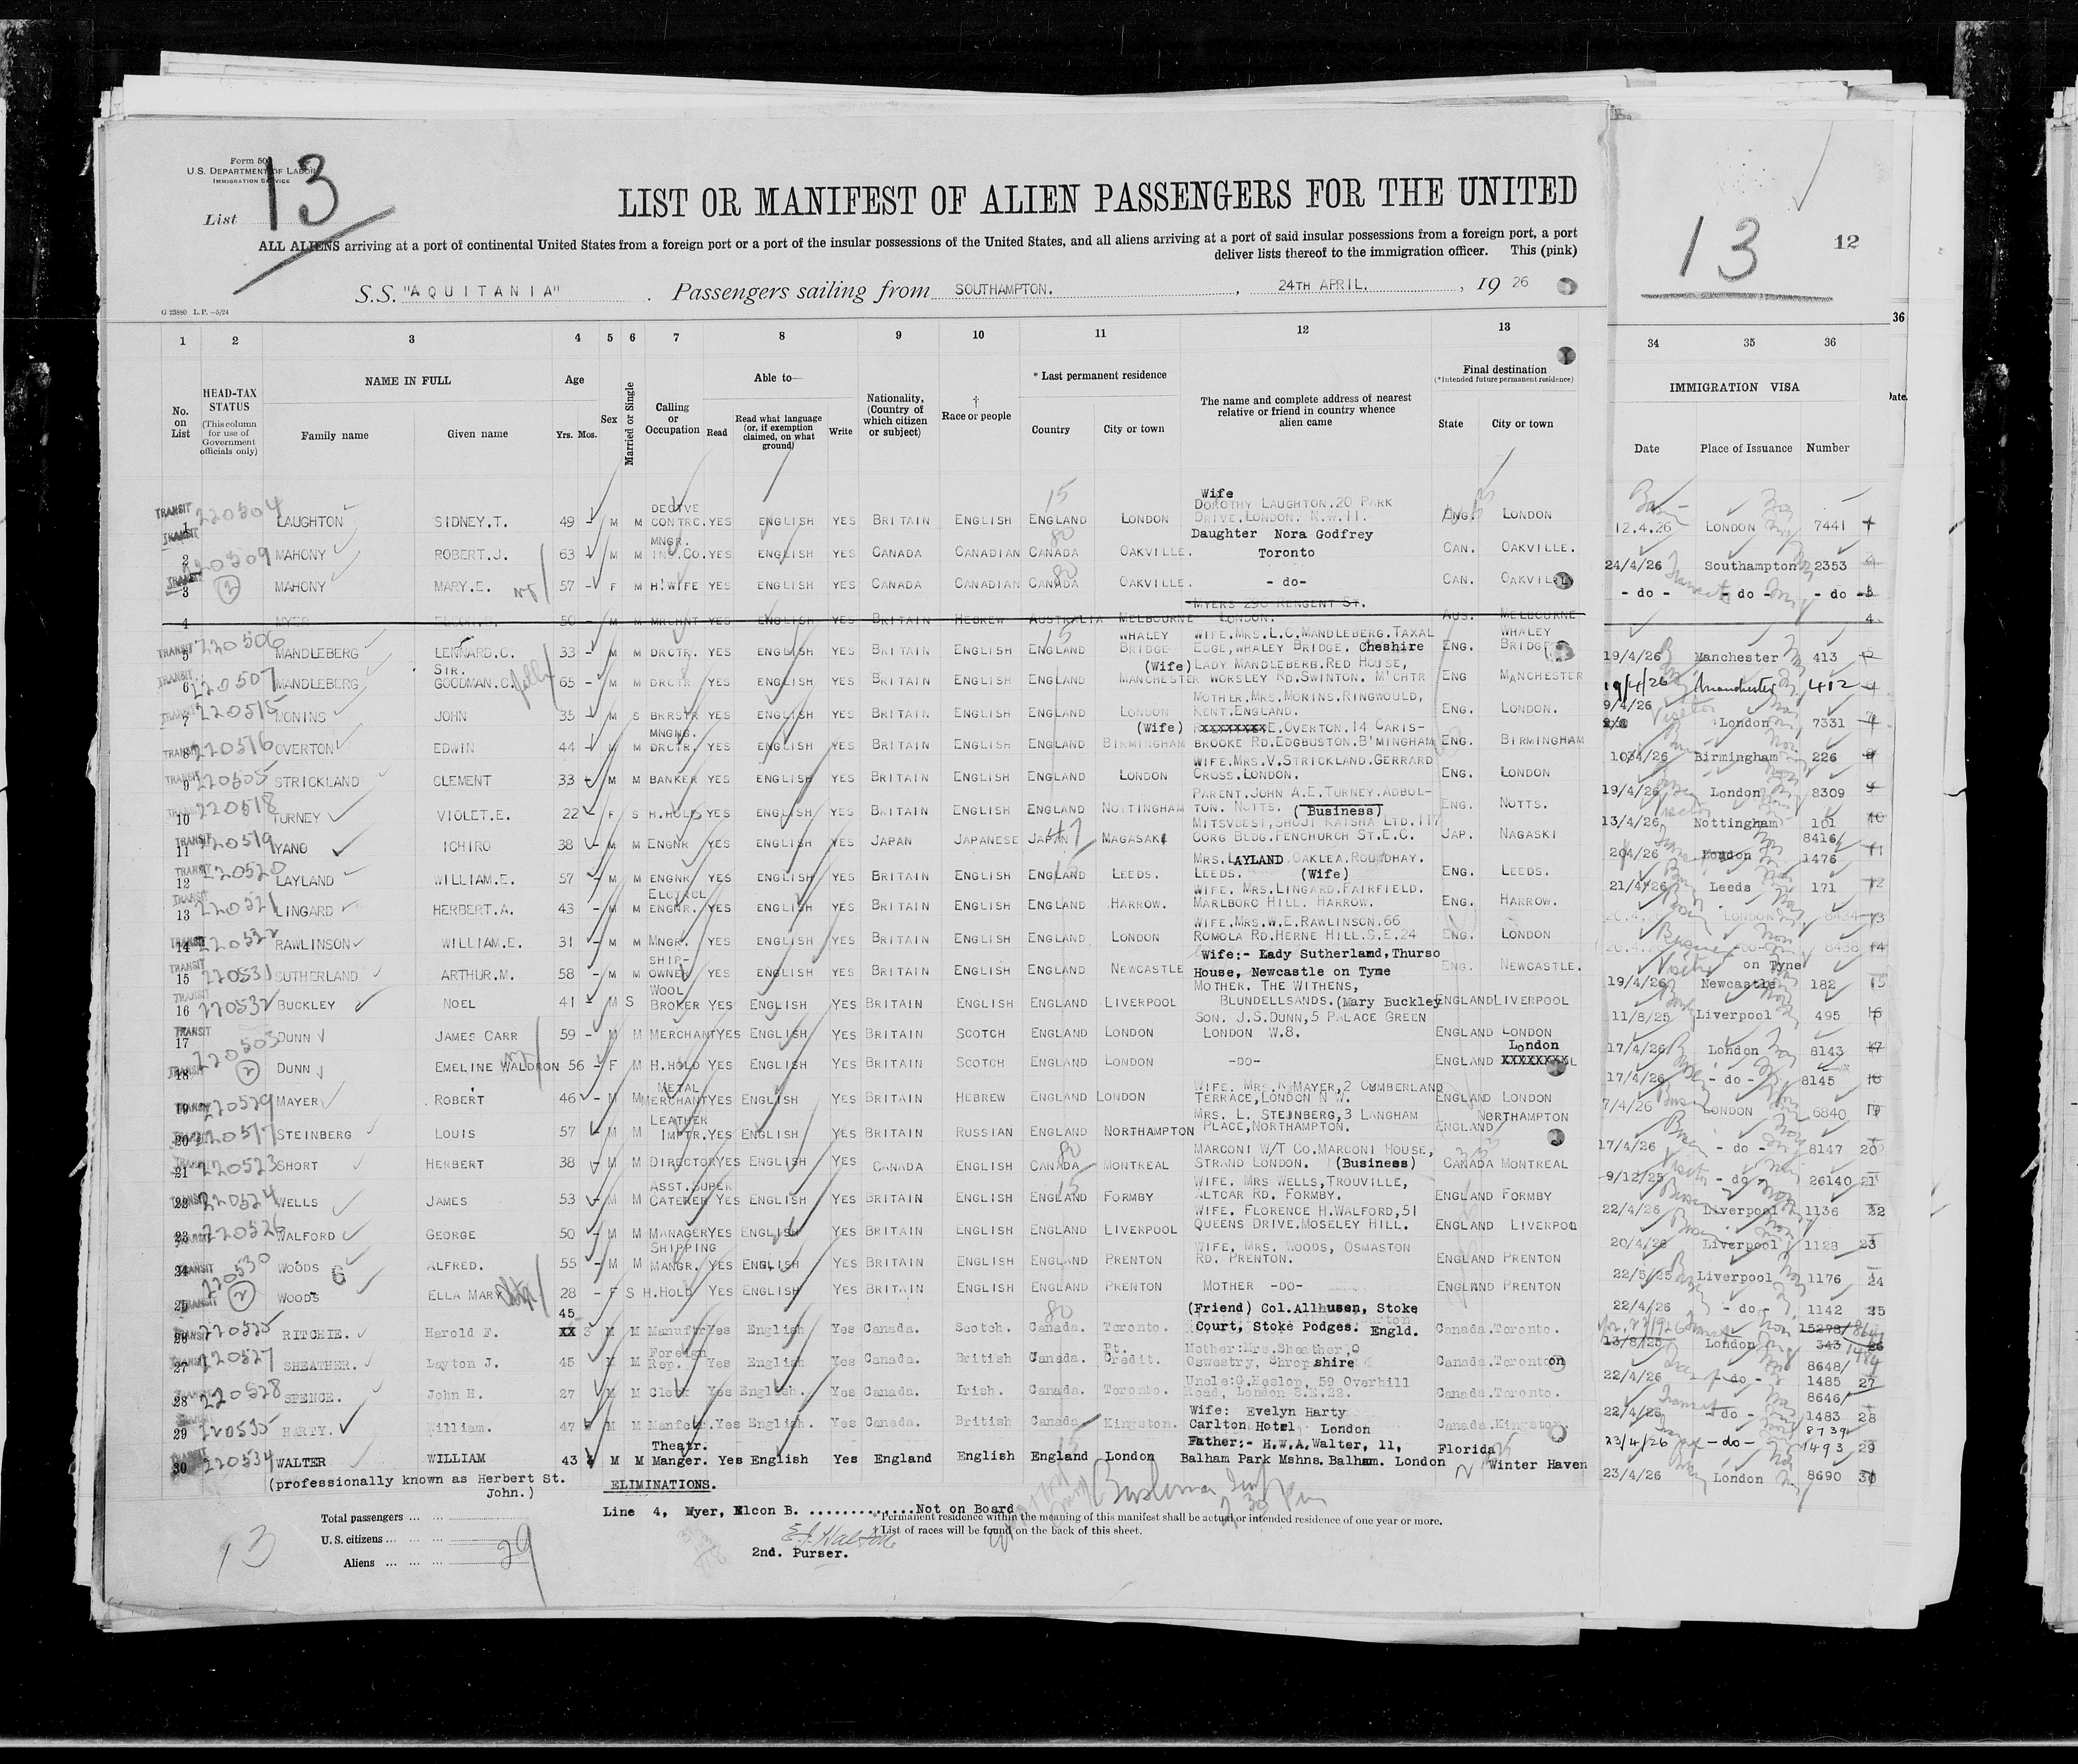 Form 50
U.S. DEPARTMENT OF LABOR
IMMIGRATION SERVICE
List 13
LIST OR MANIFEST OF ALIEN PASSENGERS FOR THE UNITED
13 12
ALL ALIENS arriving at a port of continental United States from a foreign port or a port of the insular possessions of the United States, and all aliens arriving at a port of said insular possessions from a foreign port, a port
deliver lists thereof to the immigration officer. This (pink)
S.S. "AQUITANIA" . Passengers sailing from SOUTHAMPTON. , 24TH APRIL. , 19 26
G 23880 L.P.—5/24
1 2 3 4 5 6 7 8 9 10 11 12 13 34 35 36 36
No. on List
HEAD-TAX STATUS (This column for use of Government officials only)
NAME IN FULL
Family name Given name
Age Yrs. Mos.
Sex
Married or Single
Calling or Occupation
Able to—
Read Read what language (or, if exemption claimed, on what ground) Write
Nationality, (Country of which citizen or subject)
† Race or people
* Last permanent residence
Country City or town
The name and complete address of nearest relative or friend in country whence alien came
Final destination
(*Intended future permanent residence)
State City or town
IMMIGRATION VISA
Date Place of Issuance Number
TRANSIT 1 220504 LAUGHTON SIDNEY.T. 49 - M M DECTVE CONTRC. YES ENGLISH YES BRITAIN ENGLISH ENGLAND LONDON Wife DOROTHY LAUGHTON.20 PARK DRIVE.LONDON. N.W.11. ENG. LONDON 12.4.26 LONDON 7441 1
TRANSIT 2 220509 MAHONY ROBERT.J. 63 M M MNGR. INS.CO. YES ENGLISH YES CANADA CANADIAN CANADA OAKVILLE. Daughter Nora Godfrey Toronto CAN. OAKVILLE. 24/4/26 Southampton 2353 2
TRANSIT 3 (2) MAHONY MARY.E. 57 - F M H'WIFE YES ENGLISH YES CANADA CANADIAN CANADA OAKVILLE. - do- CAN. OAKVILLE - do - - do - - do - 3
4 MYER ELCON.B. 50 - M M MRCHNT YES ENGLISH YES BRITAIN HEBREW AUSTRALIA MELBOURNE MYERS 290 RENGENT ST. LONDON. AUS. MELBOURNE 4
TRANSIT 5 220506 MANDLEBERG LENNARD.C. 33 - M M DRCTR. YES ENGLISH YES BRITAIN ENGLISH ENGLAND WHALEY BRIDGE WIFE.MRS.L.C.MANDLEBERG.TAXAL EDGE,WHALEY BRIDGE. Cheshire ENG. WHALEY BRIDGE 19/4/26 Manchester 413 5
TRANSIT 6 220507 MANDLEBERG SIR. GOODMAN.C. 65 - M M DRCTR YES ENGLISH YES BRITAIN ENGLISH ENGLAND MANCHESTER (Wife) LADY MANDLEBERG.RED HOUSE, WORSLEY RD.SWINTON. M'CHTR ENG MANCHESTER 19/4/26 Manchester 412 6
7 220515 MONINS JOHN 35 - M S BRRSTR YES ENGLISH YES BRITAIN ENGLISH ENGLAND LONDON MOTHER.MRS.MORINS.RINGWOULD, KENT.ENGLAND. ENG. LONDON. 9/4/26 London 7331 7
TRANSIT 8 220516 OVERTON EDWIN 44 - M M MNGNG. DRCTR. YES ENGLISH YES BRITAIN ENGLISH ENGLAND BIRMINGHAM (Wife) XXXXXXXXE.OVERTON.14 CARIS- BROOKE RD.EDGBUSTON.B'MINGHAM ENG. BIRMINGHAM Birmingham 226 8
TRANSIT 9 220505 STRICKLAND CLEMENT 33 M M BANKER YES ENGLISH YES BRITAIN ENGLISH ENGLAND LONDON WIFE.MRS.V.STRICKLAND.GERRARD CROSS.LONDON. ENG. LONDON 19/4/26 London 8309 9
10 220518 TURNEY VIOLET.E. 22 F S H.HOLD YES ENGLISH YES BRITAIN ENGLISH ENGLAND NOTTINGHAM PARENT.JOHN A.E.TURNEY.ADBOL- TON. NOTTS. (Business) ENG. NOTTS. 13/4/26 Nottingham 101 10
TRANSIT 11 220519 YANO ICHIRO 38 M M ENGNR YES ENGLISH YES JAPAN JAPANESE JAPAN MAGASAKI MITSVBESI,SHOJI KAISHA LTD.117 CORG BLDG.FENCHURCH ST.E.C. JAP. NAGASKI 204/26 London 8416/ 1476 11
TRANSIT 12 220520 LAYLAND WILLIAM.E. 57 - M M ENGNR YES ENGLISH YES BRITAIN ENGLISH ENGLAND LEEDS. MRS.LAYLAND OAKLEA.ROUNDHAY. LEEDS. (Wife) ENG. LEEDS. 21/4/26 Leeds 171 12
TRANSIT 13 220521 LINGARD HERBERT.A. 43 - M M ELCTRCL ENGNR. YES ENGLISH YES BRITAIN ENGLISH ENGLAND HARROW. WIFE. MRS.LINGARD.FAIRFIELD. MARLBORO HILL. HARROW. ENG. HARROW. LONDON 8434 13
14 220522 RAWLINSON WILLIAM.E. 31 - M M MNGR. YES ENGLISH YES BRITAIN ENGLISH ENGLAND LONDON WIFE.MRS.W.E.RAWLINSON.66 ROMOLA RD.HERNE HILL.S.E.24 ENG. LONDON 20.4. -do- 8438 14
TRANSIT 15 220531 SUTHERLAND ARTHUR.M. 58 - M M SHIP- OWNER YES ENGLISH YES BRITAIN ENGLISH ENGLAND NEWCASTLE Wife:- Lady Sutherland,Thurso House, Newcastle on Tyne ENG. NEWCASTLE. 19/4/26 Newcastle on Tyne 182 15
TRANSIT 16 220532 BUCKLEY NOEL 41 - M S WOOL BROKER YES ENGLISH YES BRITAIN ENGLISH ENGLAND LIVERPOOL MOTHER. THE WITHENS, BLUNDELLSANDS.(Mary Buckley ENGLAND LIVERPOOL 11/8/25 Liverpool 495 16
TRANSIT 17 220503 DUNN JAMES CARR 59 - M M MERCHANT YES ENGLISH YES BRITAIN SCOTCH ENGLAND LONDON SON. J.S.DUNN,5 PALACE GREEN LONDON W.8. ENGLAND LONDON 17/4/26 London 8143 17
TRANSIT 18 (2) DUNN EMELINE WALDRON 56 - F M H.HOLD YES ENGLISH YES BRITAIN SCOTCH ENGLAND LONDON -DO- ENGLAND London XXXXXXXXL 17/4/26 - do - 8145 18
TRANSIT 19 220529 MAYER ROBERT 46 - M M METAL MERCHANT YES ENGLISH YES BRITAIN HEBREW ENGLAND LONDON WIFE. MRS.R MAYER,2 CUMBERLAND TERRACE,LONDON N W. ENGLAND LONDON 7/4/26 LONDON 6840 19
TRANSIT 20 220517 STEINBERG LOUIS 57 - M M LEATHER IMPTR. YES ENGLISH YES BRITAIN RUSSIAN ENGLAND NORTHAMPTON MRS. L. STEINBERG,3 LANGHAM PLACE,NORTHAMPTON. ENGLAND NORTHAMPTON 17/4/26 - do - 8147 20
21 220523 SHORT HERBERT 38 - M M DIRECTOR YES ENGLISH YES CANADA ENGLISH CANADA MONTREAL MARCONI W/T CO.MARCONI HOUSE, STRAND LONDON. (Business) CANADA MONTREAL 9/12/25 - do - 26140 21
TRANSIT 22 220524 WELLS JAMES 53 - M M ASST.SUPER CATERER YES ENGLISH YES BRITAIN ENGLISH ENGLAND FORMBY WIFE. MRS WELLS,TROUVILLE, ALTCAR RD. FORMBY. ENGLAND FORMBY 22/4/26 Liverpool 1136 22
TRANSIT 23 220526 WALFORD GEORGE 50 - M M MANAGER YES ENGLISH YES BRITAIN ENGLISH ENGLAND LIVERPOOL WIFE. FLORENCE H.WALFORD,51 QUEENS DRIVE.MOSELEY HILL. ENGLAND LIVERPOO 20/4/26 Liverpool 1128 23
TRANSIT 24 220530 WOODS ALFRED. 55 - M M SHIPPING MANGR. YES ENGLISH YES BRITAIN ENGLISH ENGLAND PRENTON WIFE. MRS. WOODS, OSMASTON RD. PRENTON. ENGLAND PRENTON 22/5/25 Liverpool 1176 24
TRANSIT 25 (2) WOODS ELLA MARY 28 - F S H.HOLD YES ENGLISH YES BRITAIN ENGLISH ENGLAND PRENTON MOTHER -DO- ENGLAND PRENTON 22/4/26 - do - 1142 25
26 220525 RITCHIE. Harold F. 45 XX M M Manuftr Yes English Yes Canada. Scotch. Canada. Toronto. (Friend) Col.Allhusen, Stoke Court, Stoke Podges. Engld. Canada.Toronto. 13/8/25 London 15278/ 343 26
27 220527 SHEATHER. Layton J. 45 M M Foreign Rep. Yes English Yes Canada. British Canada. Pt. Credit. Mother:Mrs.Sheather, Oswestry, Shropshire Canada.Toronto 22/4/26 - do - 8648/ 1485 27
28 220528 SPENCE. John H. 27 M M Clerk Yes English. Yes Canada. Irish. Canada. Toronto. Uncle:G.Heslop, 59 Overhill Road, London S.E.22. Canada.Toronto. 22/4/26 - do - 8646/ 1483 28
29 220535 HARTY. William. 47 M M Manfctr. Yes English. Yes Canada. British Canada Kingston. Wife: Evelyn Harty Carlton Hotel London Canada.Kingston. 23/4/26 - do - 8739 1493 29
30 220534 WALTER WILLIAM 43 M M Theatr. Manger. Yes English Yes England English England London Father:- H.W.A.Walter, 11, Balham Park Mshns. Balham. London Florida Winter Haven 23/4/26 London 8690 30
(professionally known as Herbert St. John.)
ELIMINATIONS.
Line 4, Myer, Elcon B. ..............Not on Board
E.J. Walton
2nd. Purser.
*Permanent residence within the meaning of this manifest shall be actual or intended residence of one year or more.
†List of races will be found on the back of this sheet.
Total passengers
U.S. citizens
Aliens 29
13